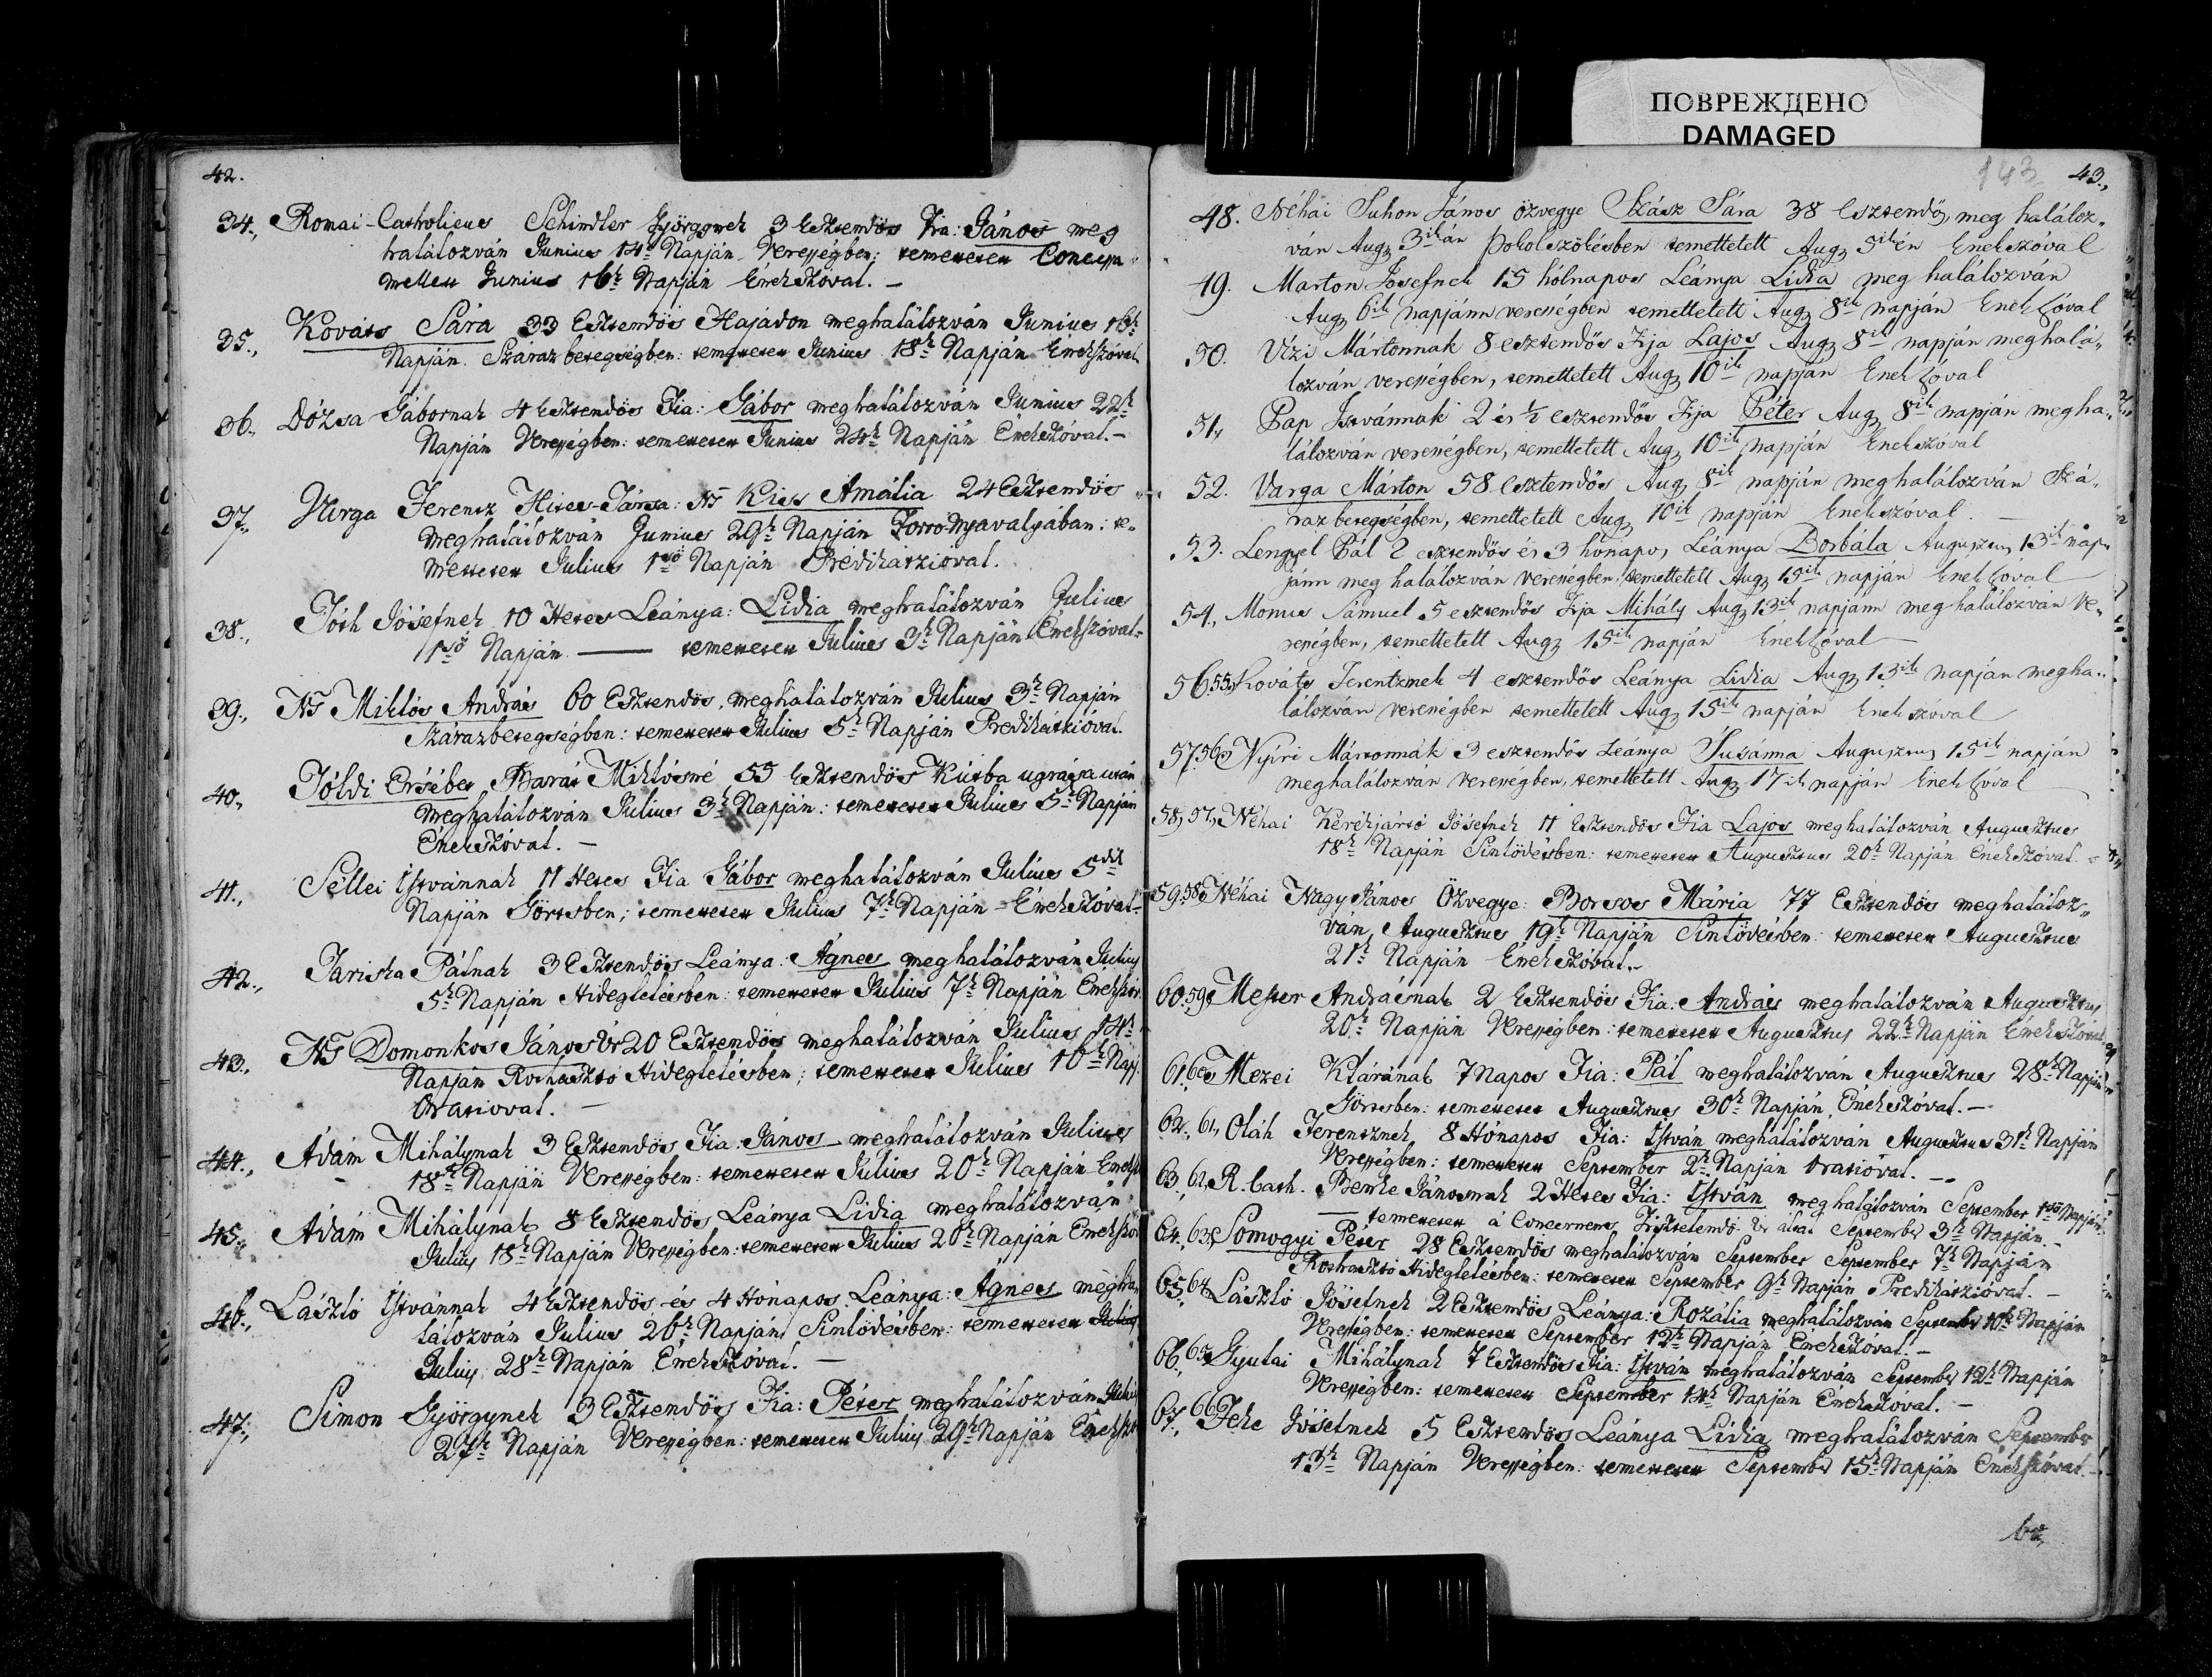 ПОВРЕЖДЕНО
DAMAGED
42.
34., Romai-Catholicus Schindler Györgynek 3 Esztendös Fia: János meg
halálozván Junius 14k Napján Verességben: temettetett
mellett Junius 16k Napján Énekszóval. –
35., Kováts Sára 33 Esztendös Hajadon meghalálozván Junius 16k
Napján. Száraz betegségben: temettetett Junius 18k Napján Énekszóval
36., Dózsa Gábornak 4 Esztendös Fia: Gábor meghalálozván Junius 22k
Napján Verességben: temettetett Junius 24k Napján Énekszóval. –
37., Virga Ferencz Hites-Társa: Ns Kiss Amália 24 Esztendös
meghalálozván Junius 29k Napján Forró Nyavalyában: te-
mettetett Julius 1ső Napján Prédikátzióval.
38., Tóth Jósefnek 10 Hetes Leánya: Lidia meghalálozván Julius
1ső Napján — temettetett Julius 3k Napján Énekszóval
39., Ns Miklós András 60 Esztendös, meghalálozván Julius 3k Napján
Szárazbetegségben: temettetett Julius 5k Napján Prédikátzióval.
40., Földi Ersébet Barát Miklósné 55 Esztendös Kútba ugrása után
meghalálozván Julius 3k Napján: temettetett Julius 5k Napján
Énekszóval. –
41., Séllei Istvánnak 11 Hetes Fia Gábor meghalálozván Julius 5dik
Napján Görtsben; temettetett Julius 7k Napján – Énekszóval
42., Jariska Pálnak 3 Esztendös Leánya: Ágnes meghalálozván Julius
5k Napján Hideglelésben: temettetett Julius 7k Napján Énekszóv
43., Ns Domonkos János Úr 20 Esztendös meghalálozván Julius 14k
Napján Rothasztó Hideglelésben; temettetett Julius 16k Napj
Oratioval. –
44., Ádám Mihálynak 3 Esztendös Fia: János meghalálozván Julius
18k Napján Verességben: temettetett Julius 20k Napján Éneksz
45., Ádám Mihálynak 8 Esztendös Leánya Lidia meghalálozván
Julius 18k Napján Verességben: temettetett Julius 20k Napján Énekszó
46., László Istvánnak 4 Esztendös es 4 Hónapos Leánya: Ágnes megha
lálozván Julius 26k Napján Sinlödésben: temettetett Julius
Julius 28k Napján Énekszóval. –
47., Simon Györgynek 3 Esztendös Fia: Péter meghalálozván Julius
27k Napján Verességben: temettetett Julius 29k Napján Énekszó
143 43.,
48. Néhai Suhon János özvegye Szász Sára 38 esztendös, meg haláloz-
ván Aug. 3ikán Pokolszökésben temettetett Aug. 5ikén Enekszóval
49. Marton Jósefnek 15 hólnapos Leánya Lidia meg halálozván
Aug. 6ik napjánn verességben temettetett Aug. 8ik napján Enekszóval
50. Vizi Mártonnak 8 esztendős Fija Lajos Aug. 8ik napján meghalá-
lozván verességben, temettetett Aug. 10ik napján Enekszóval
51. Pap Istvánnak 2 és 1/2 esztendős Fija Péter Aug. 8ik napján megha-
lálozván verességben, temettetett Aug. 10ik napján Enekszóval
52. Varga Márton 58 esztendős Aug. 8ik napján meghalálozván Szá-
raz betegségben, temettetett Aug. 10ik napján Enekszóval. –
53. Lengyel Pál 2 esztendős és 3 hónapos Leánya Borbála Augusztus 13ik nap-
jánn meg halálozván verességben, temettetett Aug. 15ik napján Enekszóval
54., Momus Sámuel 5 esztendős Fija Mihály Aug. 13ik napjánn meghalálozván Ve-
rességben, temettetett Aug. 15ik napján Énekszóval
56 55., Kováts Ferentznek 4 esztendős Leánya Lidia Aug. 13ik napján megha-
lálozván verességben temettetett Aug. 15ik napján Enekszóval
57. 56., Nyíri Mártonnák 3 esztendős Leánya Susánna Augusztus 15ik napján
meghalálozván verességben, temettetett Aug. 17ik napján Enekszóval
58., 57., Néhai Kerékjártó Jósefnek 11 Esztendös Fia Lajos meghalálozván Augusztus
18k Napján Sinlödésben: temettetett Augusztus 20k Napján Énekszóval. –
59. 58., Néhai Nagy János Özvegye: Borsos Mária 77 Esztendös meghaláloz-
ván, Augusztus 19k Napján Sinlödésben: temettetett Augusztus
21k Napján Énekszóval. –
60. 59., Mester Andrásnak 2 Esztendös Fia: András meghalálozván Augusztus
20k Napján Verességben: temettetett Augusztus 22k Napján Énekszóval
61. 60., Mezei Klárának 7 Napos Fia: Pál meghalálozván Augusztus 28k Napján
Görtsben: temettetett Augusztus 30k Napján, Énekszóval. –
62., 61., Oláh Ferencznek 8 Hónapos Fia: István meghalálozván Augusztus 31k Napján
Verességben: temettetett September 2k Napján Oratióval. –
63., 62., R. Cath. Benke Jánosnak 2 Hetes Fia: István meghalálozván September 1ső Napján
— temettetett a Concernens Tisztelendö Úr által September 3k Napján. –
64., 63., Somogyi Péter 28 Esztendös meghalálozván September September 7k Napján
Rothasztó Hideglelésben: temettetett September 9k Napján Prédikátzióval. –
65., 64 László Jósefnek 2 Esztendös Leánya: Rozália meghalálozván September 10k Napján
Verességben: temettetett September 12k Napján Énekszóval. –
66., 65., Gyulai Mihálynak 7 Esztendös Fia: István meghalálozván September 12k Napján
Verességben: temettetett September 14k Napján Énekszóval. –
67., 66 Feke Jósefnek 5 Esztendös Leánya Lidia meghalálozván September
13k Napján Verességben: temettetett September 15k Napján Énekszóval. –